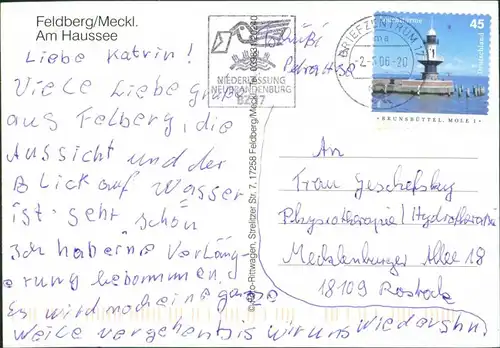 Feldberg/Meckl.
Am Haussee
Liebe Katrin!
Viele Liebe grüße
aus Felberg, die
Aussicht und der
Blick auf Wasser
ist sehr schön
Ich habe eine Verläng-
erung bekommen.
Es wird noch eine ganze
Weile vergehen bis wir uns wiedersehn.
Petra
NIEDERLASSUNG
NEUBRANDENBURG
BRIEFZENTRUM 17
45
Deutschland
BRUNSBÜTTEL, MOLE 1
-Rittwagen, Strelitzer Str. 7, 17258 Feldberg/Meckl.
An
Frau Geschefsky
Physiotherapie/Hydrotherapie
Mecklenburger Allee 18
18109 Rostock